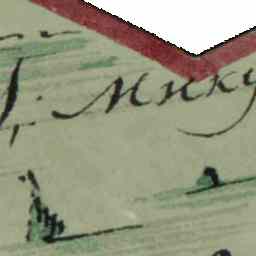 Г. Мику